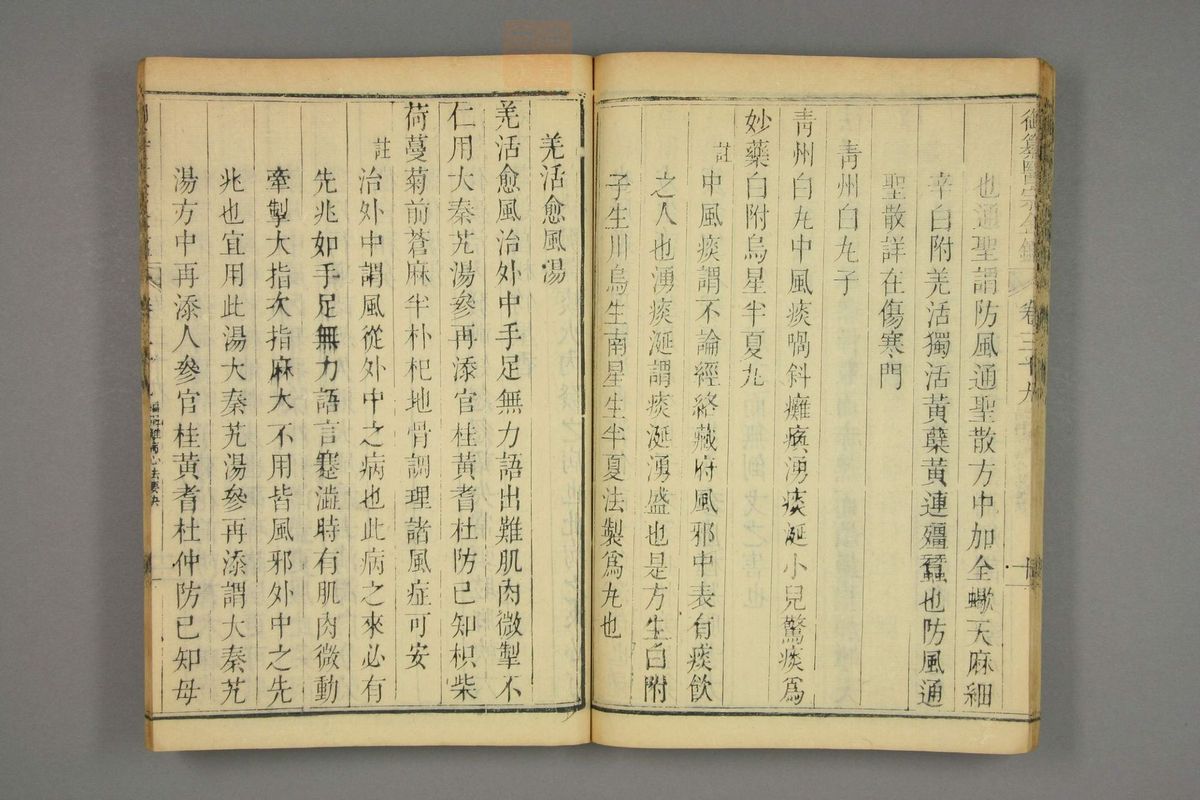 御纂醫宗金鑑 卷三十九
也通聖謂防風通聖散方中加全蠍天麻細
辛白附羌活獨活黃蘗黃連殭蠶也防風通
聖散詳在傷寒門
青州白丸子
青州白丸中風痰喎斜癱瘓湧痰涎小兒驚痰爲
妙藥白附烏星半夏丸
註
中風痰謂不論經絡藏府風邪中表有痰飲
之人也湧痰涎謂痰涎湧盛也是方生白附
子生川烏生南星生半夏法製爲丸也
羌活愈風湯
羌活愈風治外中手足無力語出難肌肉微掣不
仁用大秦艽湯參再添官桂黃耆杜防已知枳柴
荷蔓菊前蒼麻半朴杞地骨調理諸風症可安
註
治外中謂風從外中之病也此病之來必有
先兆如手足無力語言蹇澁時有肌肉微動
牽掣大指次指麻大不用皆風邪外中之先
兆也宜用此湯大秦艽湯參再添謂大秦艽
湯方中再添人參官桂黃耆杜仲防已知母
編輯雜病心法要訣